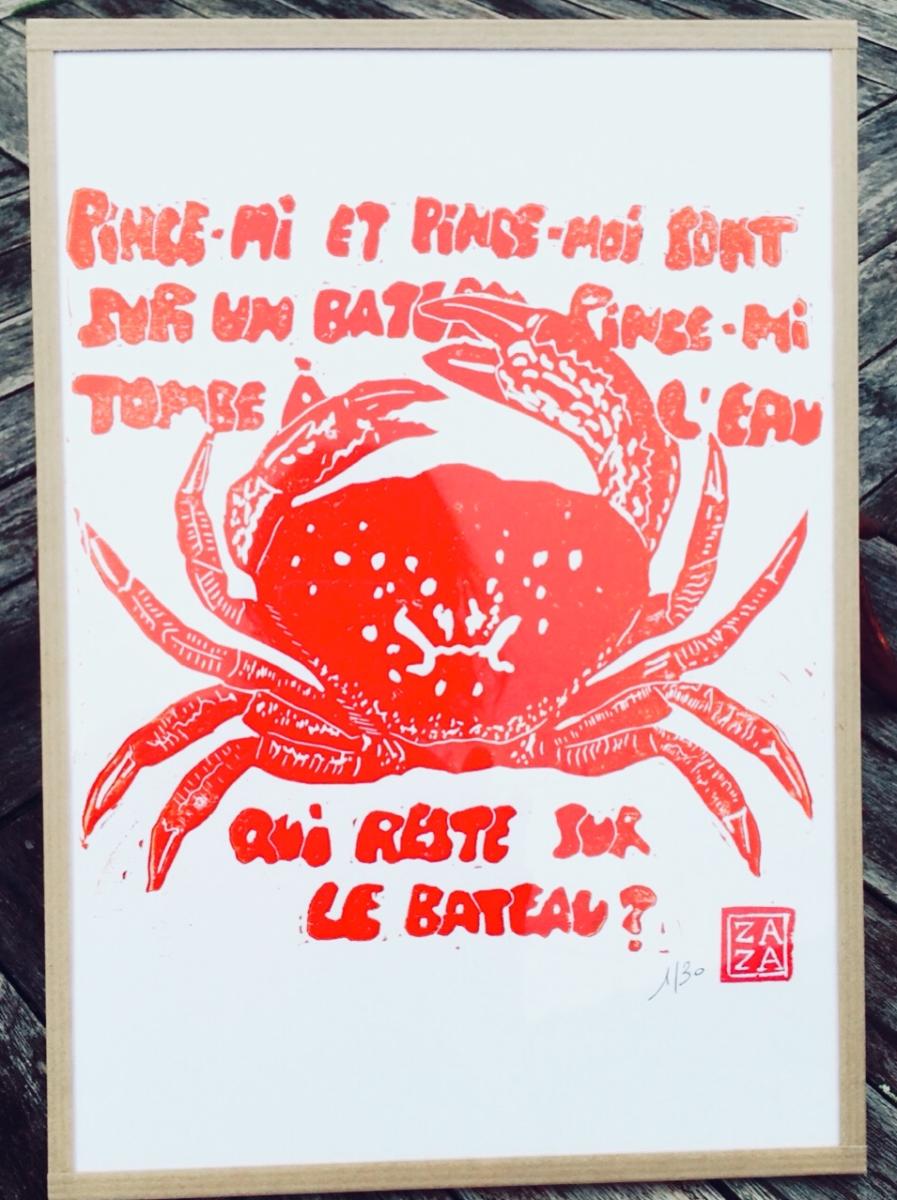 PINCE-Mi ET PiNCE-MOi SONT
SUR UN BATEAU PiNCE-Mi
TOMBE À L'EAU
QUi RESTE SUR
LE BATEAU?
1/30
ZA
ZA